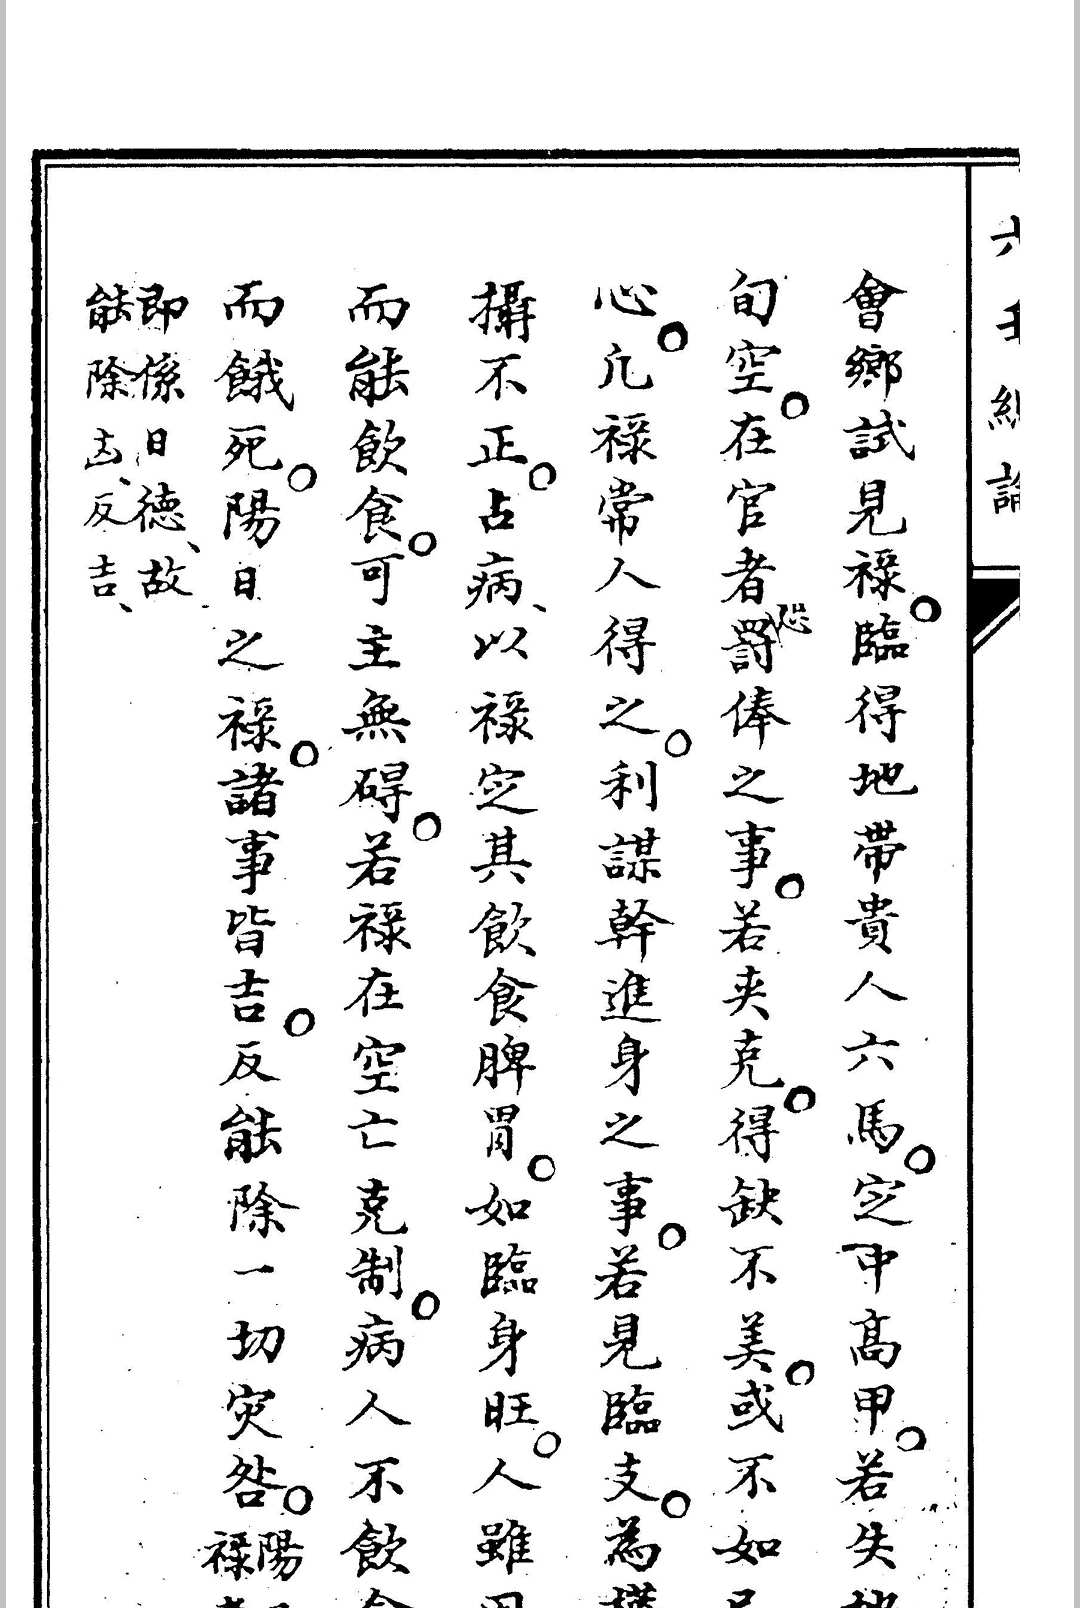 會鄉試見禄。臨得地帶貴人六馬。定中高甲。若失地
旬空。在官者罰俸之事。若夾克。得缺不美。或不如
恐
心。凡禄常人得之。利謀幹進身之事。若見臨支。為
攝不正。占病、以禄定其飲食脾胃。如臨身旺。人雖
而能飲食。可主無碍。若禄在空亡克制。病人不飲食
而餓死。陽日之禄。諸事皆吉。反能除一切灾咎。陽
禄
即係日德、故
能除凶、反吉、